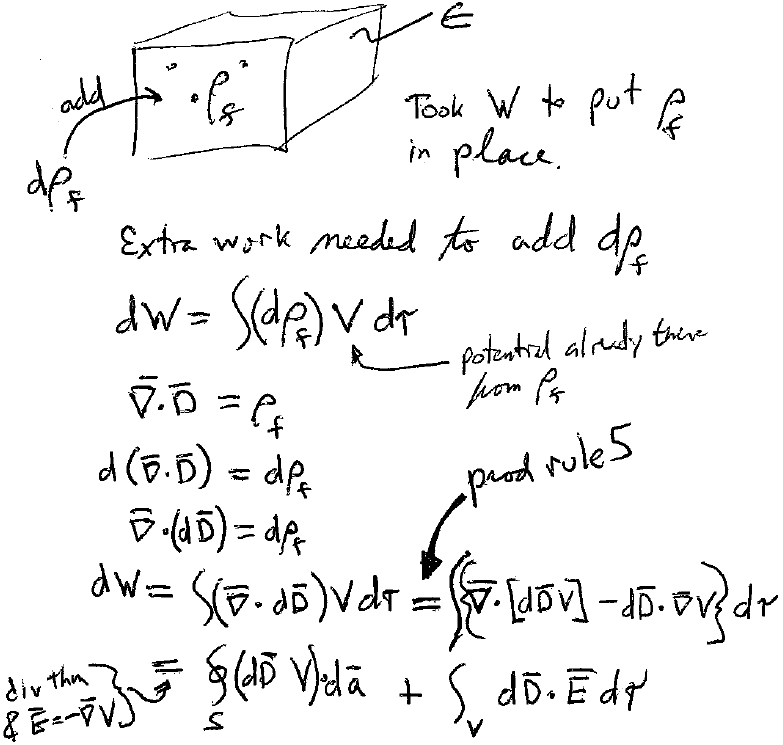 ϵ
add
ρ_f
dρ_f
Took W to put ρ_f
in place.
Extra work needed to add dρ_f
dW = ∫(dρ_f) V dτ
potential already there
from ρ_f
∇̄·D̄ = ρ_f
d(∇̄·D̄) = dρ_f
prod rule 5
∇̄·(dD̄) = dρ_f
dW = ∫(∇̄·dD̄)V dτ = ∫{∇̄·[dD̄V] - dD̄·∇̄V}dτ
div thm
& Ē=-∇̄V
= ∮_S (dD̄ V)·dā + ∫_V dD̄·Ē dτ